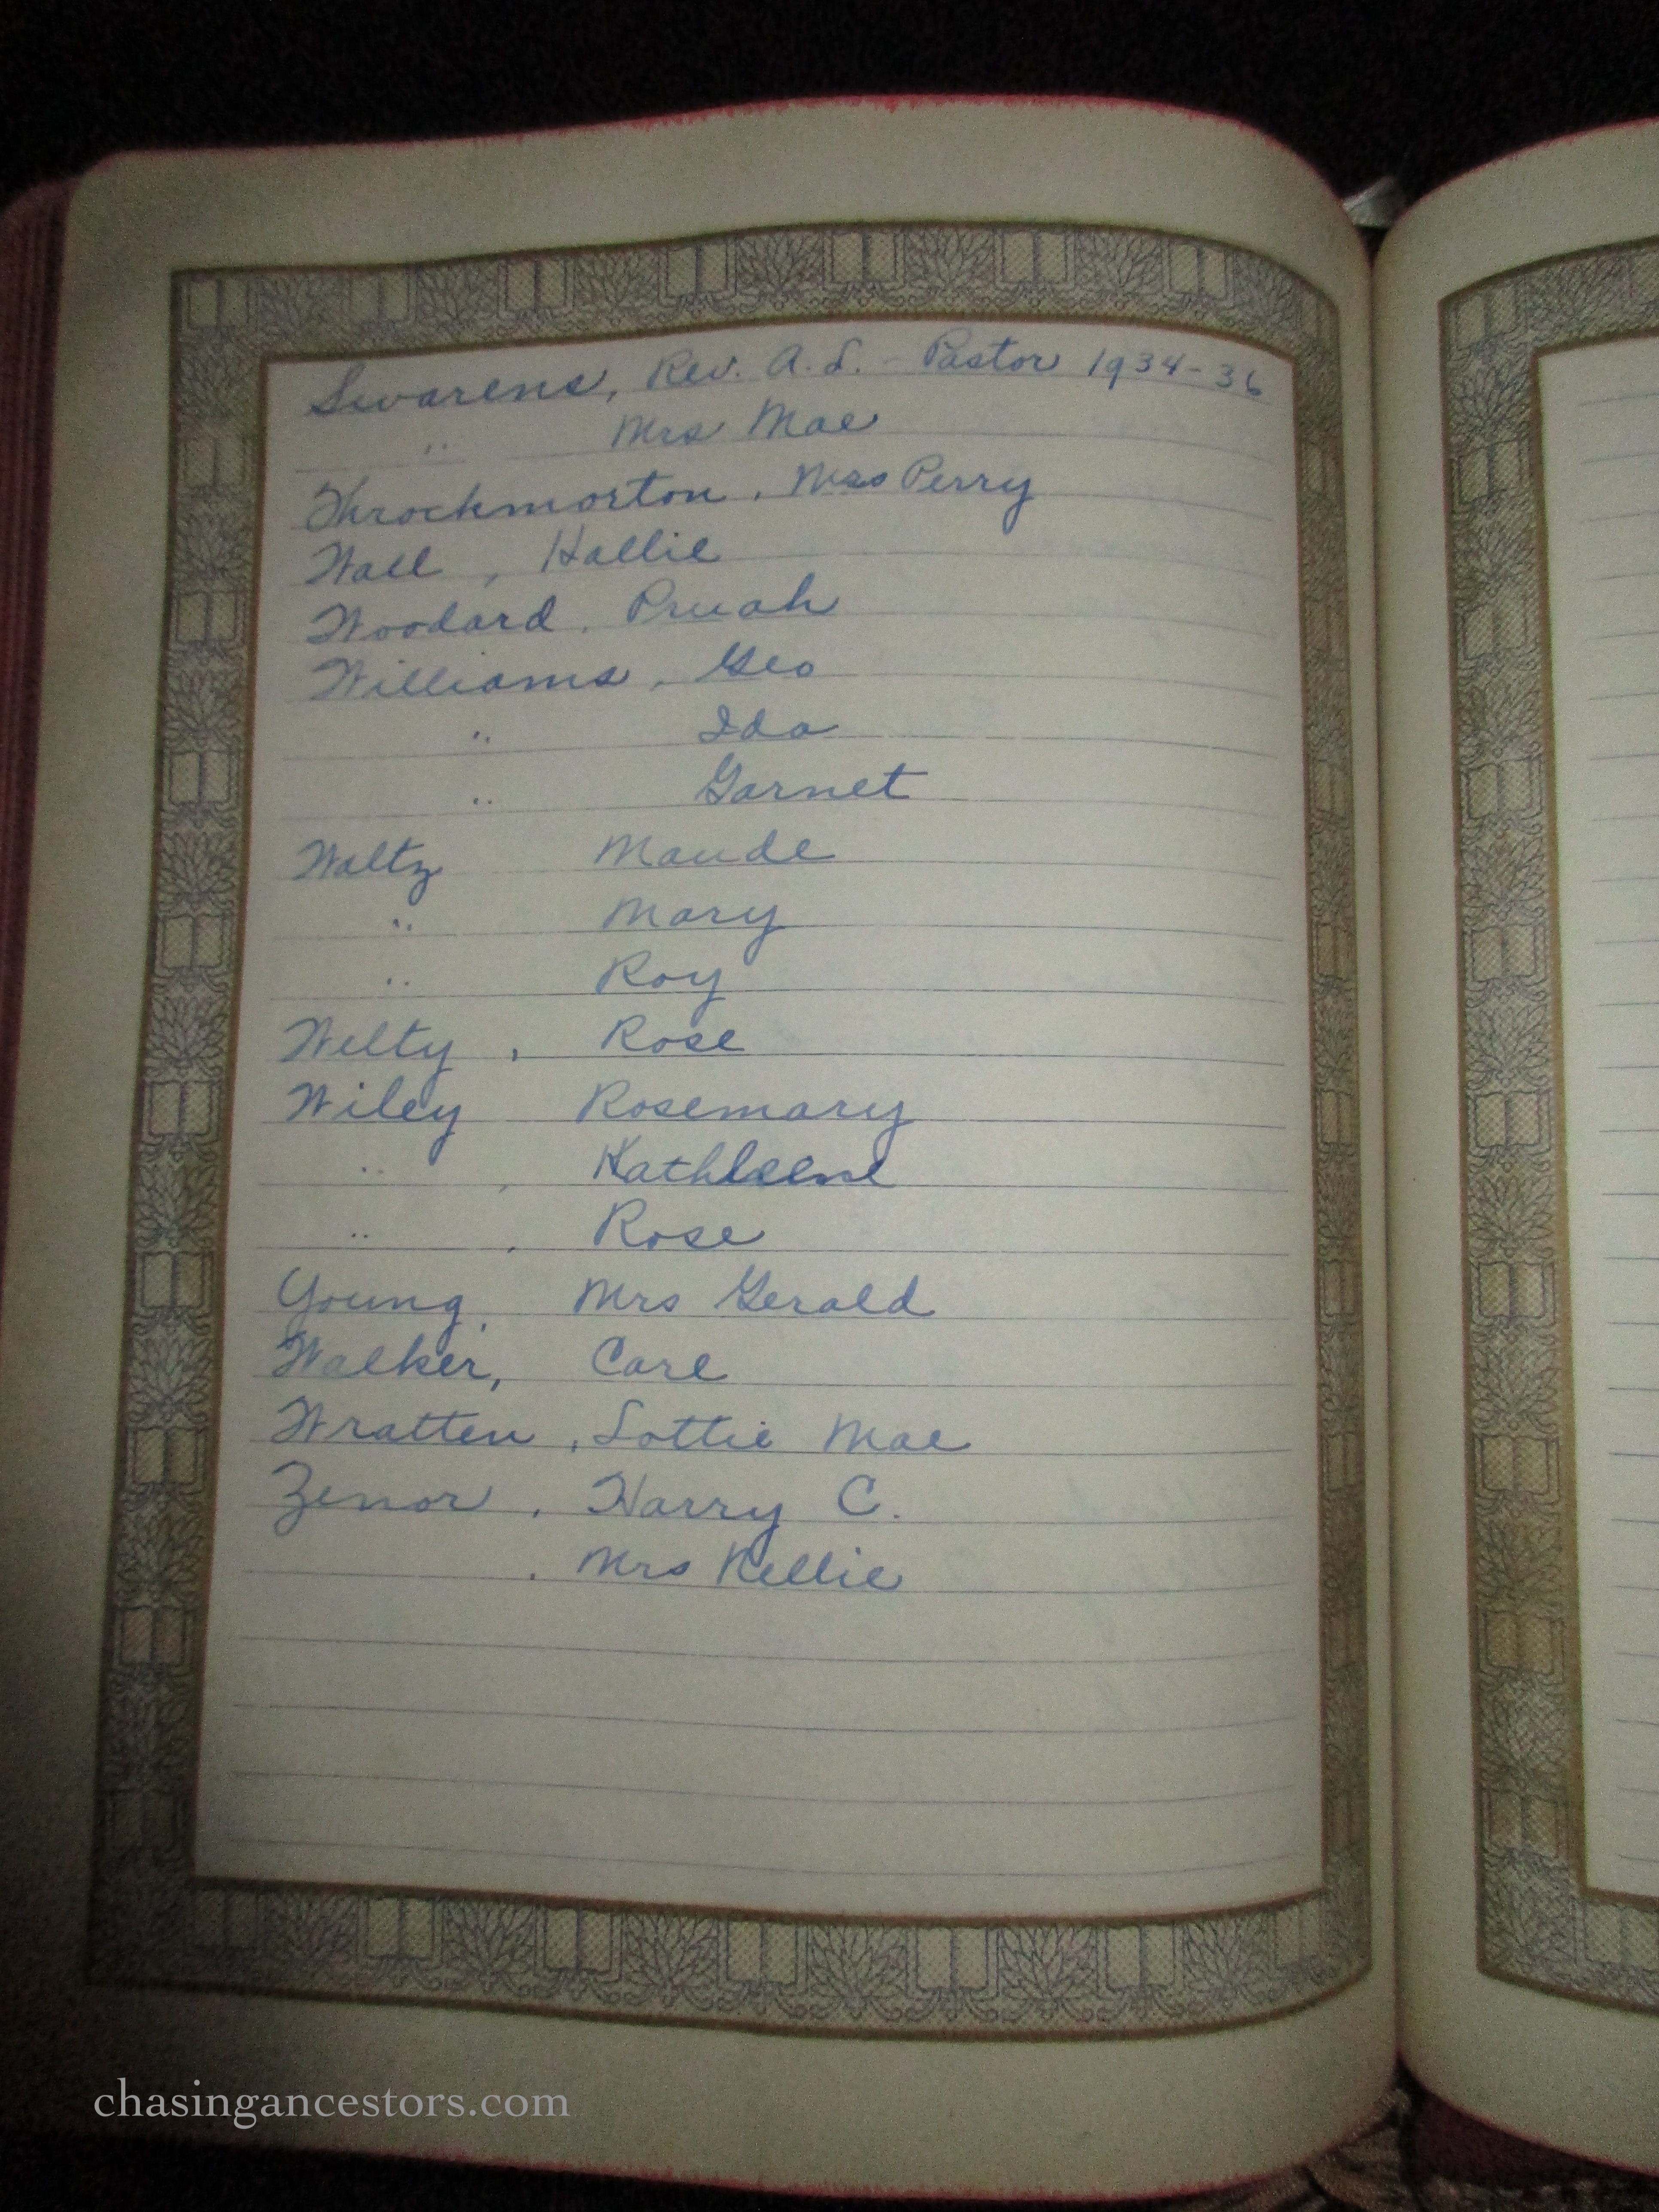 Swarens, Rev. A. L. - Pastor 1934-36
" Mrs Mae
Throckmorton, Mrs Perry
Wall, Hallie
Woodard, Pruah
Williams, Geo
" Ida
" Garnet
Waltz Maude
" Mary
" Roy
Welty, Rose
Wiley, Rosemary
", Kathleene
", Rose
Young, Mrs Gerald
Walker, Carl
Wratten, Lottie Mae
Zenor, Harry C.
, Mrs Nellie
chasingancestors.com